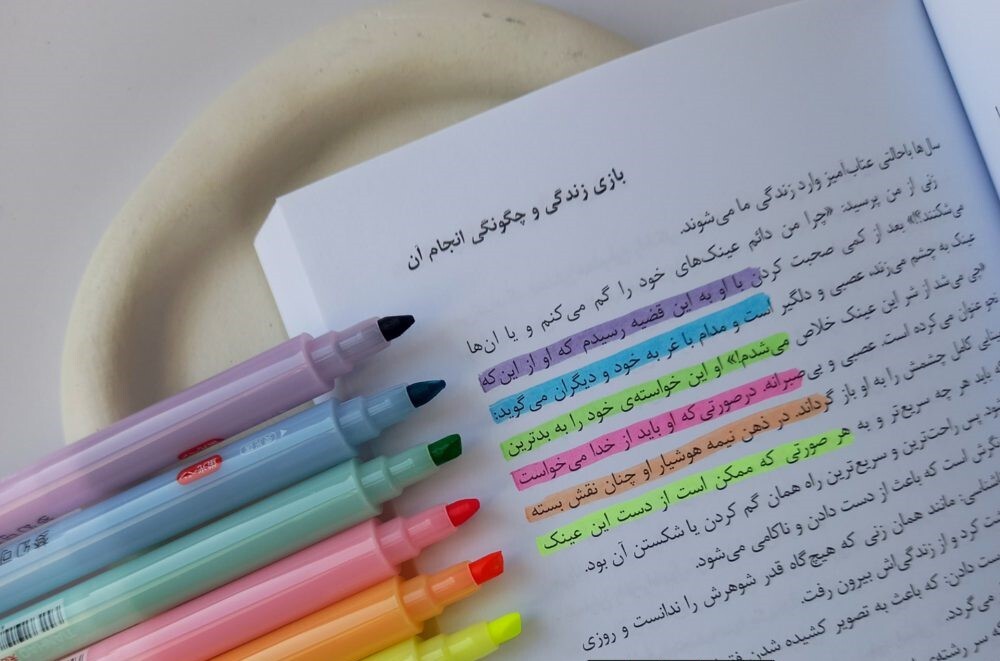 بازی زندگی و چگونگی انجام آن
سال‌ها باحالتی عتاب‌آمیز وارد زندگی ما می‌شوند.
زنی از من پرسید: «چرا من دائم عینک‌های خود را گم می‌کنم و یا ان‌ها
می‌شکنند؟!» بعد از کمی صحبت کردن با او به این قضیه رسیدم که او از این‌که
عینک به چشم می‌زند، عصبی و دلگیر است و مدام با غر به خود و دیگران می‌گوید:
«چی می‌شد از شر این عینک خلاص می‌شدم!» او این خواسته‌ی خود را به بدترین
نحو عنوان می‌کرده است. عصبی و بی‌صبرانه. درصورتی که او باید از خدا می‌خواست
بینایی کامل چشمش را به او باز گرداند. در ذهن نیمه هوشیار او چنان نقش بسته
که باید هر چه سریع‌تر و به هر صورتی که ممکن است از دست این عینک
شود پس راحت‌ترین و سریع‌ترین راه همان گم کردن یا شکستن آن بود.
نگرش است که باعث از دست دادن و ناکامی می‌شود.
مانند همان زنی که هیچ‌گاه قدر شوهرش را ندانست و روزی
کرد و از زندگی‌اش بیرون رفت.
دست دادن: که باعث به تصویر کشیده شدن
می‌گردد.
سر رشته‌ی